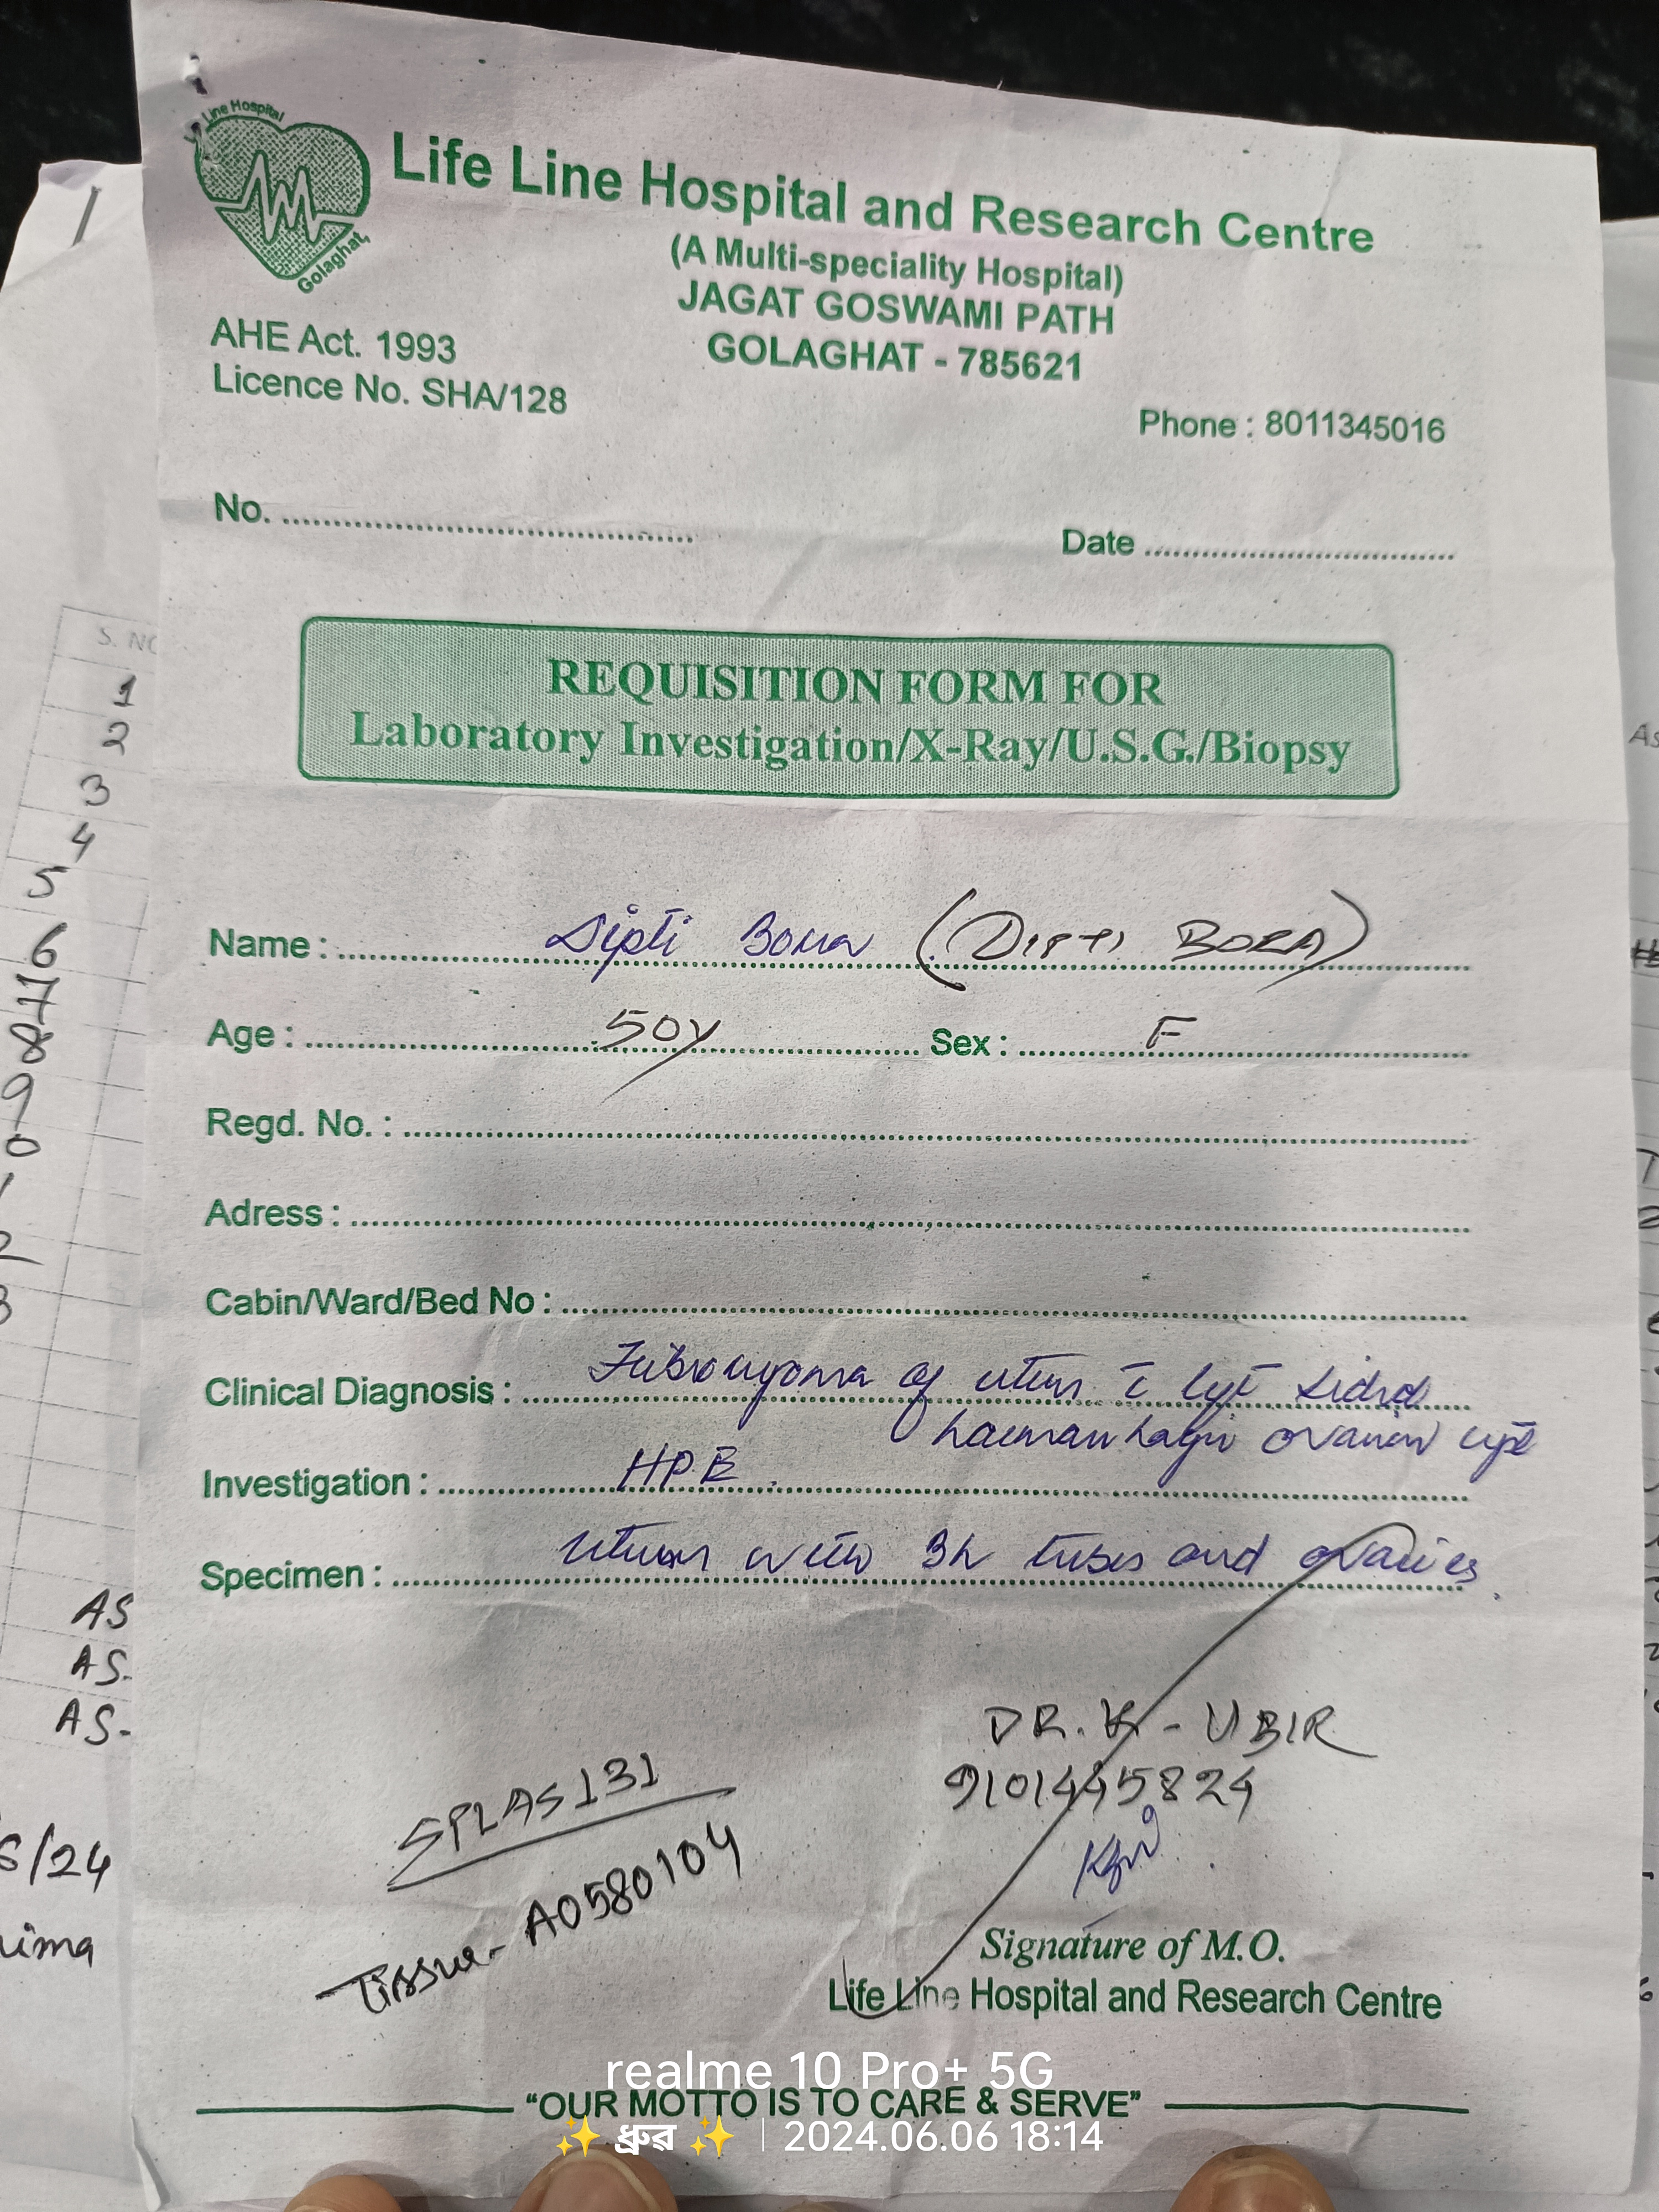 Life Line Hospital
Golaghat,
Life Line Hospital and Research Centre
(A Multi-speciality Hospital)
JAGAT GOSWAMI PATH
GOLAGHAT - 785621
AHE Act. 1993
Licence No. SHA/128
Phone : 8011345016
No.
Date
REQUISITION FORM FOR
Laboratory Investigation/X-Ray/U.S.G./Biopsy
Name : Dipti Bora (DIPTI BORA)
Age : 50y Sex : F
Regd. No. :
Adress :
Cabin/Ward/Bed No :
Clinical Diagnosis : Fibromyoma of uterus c̄ left sided
haemorrhagic ovarian cyst
Investigation : HPE.
Specimen : uterus with BL tubes and ovaries.
DR. K - UBIR
9101445824
SPLAS131
Tissue - A0580104
Signature of M.O.
Life Line Hospital and Research Centre
"OUR MOTTO IS TO CARE & SERVE"
realme 10 Pro+ 5G
✨ ধ্ৰুৱ ✨ | 2024.06.06 18:14
S. NO
1
2
3
4
5
6
7
8
9
AS
AS.
AS-
6/24